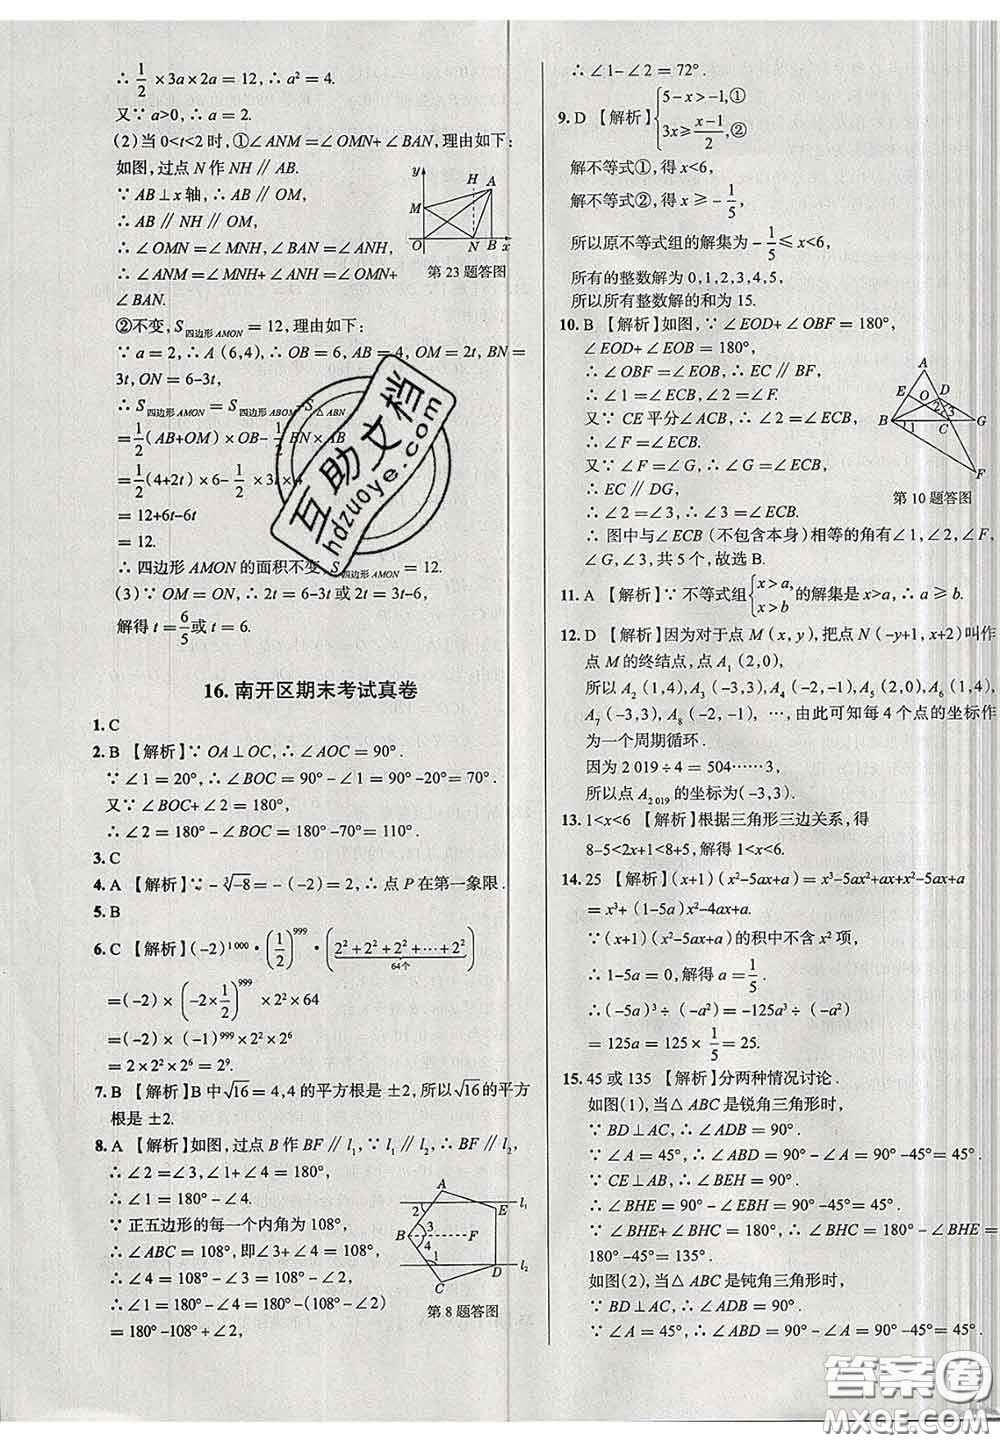 ∴ 1/2 ×3a×2a=12,∴ a²=4.
又∵ a>0,∴ a=2.
(2)当 0<t<2 时,①∠ANM=∠OMN+∠BAN,理由如下:
如图,过点 N 作 NH∥AB.
∵ AB⊥x 轴,∴ AB∥OM,
∴ AB∥NH∥OM,
∴ ∠OMN=∠MNH,∠BAN=∠ANH,
∴ ∠ANM=∠MNH+∠ANH=∠OMN+
∠BAN.
y H A M O N B x
第 23 题答图
②不变,S四边形AMON=12,理由如下:
∵ a=2,∴ A(6,4),∴ OB=6,AB=4,OM=2t,BN=
3t,ON=6-3t,
∴ S四边形AMON=S四边形ABOM-S△ABN
=1/2(AB+OM)×OB-1/2 BN×AB
=1/2(4+2t)×6-1/2×3t×4
=12+6t-6t
=12.
∴ 四边形 AMON 的面积不变,S四边形AMON=12.
(3)∵ OM=ON,∴ 2t=6-3t 或 2t=3t-6,
解得 t=6/5 或 t=6.
16. 南开区期末考试真卷
1. C
2. B 【解析】∵ OA⊥OC,∴ ∠AOC=90°.
∵ ∠1=20°,∴ ∠BOC=90°-∠1=90°-20°=70°.
又∵ ∠BOC+∠2=180°,
∴ ∠2=180°-∠BOC=180°-70°=110°.
3. C
4. A 【解析】∵ -∛-8=-(-2)=2,∴ 点 P 在第一象限.
5. B
6. C 【解析】(-2)¹⁰⁰⁰·(1/2)⁹⁹⁹·(2²+2²+2²+…+2²)
64个
=(-2)×(-2×1/2)⁹⁹⁹×2²×64
=(-2)×(-1)⁹⁹⁹×2²×2⁶
=2×2²×2⁶=2⁹.
7. B 【解析】B 中√16=4,4 的平方根是 ±2,所以√16的平方
根是 ±2.
8. A 【解析】如图,过点 B 作 BF∥l₁,∵ l₁∥l₂,∴ BF∥l₂,
∴ ∠2=∠3,∠1+∠4=180°,
∴ ∠1=180°-∠4.
∵ 正五边形的每一个内角为 108°,
∴ ∠ABC=108°,即∠3+∠4=108°,
∴ ∠4=108°-∠3=108°-∠2,
∴ ∠1=180°-∠4=180°-(108°-∠2)
=180°-108°+∠2,
A l₁ 2 E B 3 F 4 1 D l₂ C
第 8 题答图
∴ ∠1-∠2=72°.
9. D 【解析】{5-x>-1,① 3x≥(x-1)/2,②
解不等式①,得 x<6,
解不等式②,得 x≥-1/5,
所以原不等式组的解集为-1/5≤x<6,
所有的整数解为 0,1,2,3,4,5,
所以所有整数解的和为 15.
10. B 【解析】如图,∵ ∠EOD+∠OBF=180°,
∠EOD+∠EOB=180°,
∴ ∠OBF=∠EOB,∴ EC∥BF,
∴ ∠1=∠ECB,∠2=∠F.
又∵ CE 平分∠ACB,∴ ∠2=∠ECB,
∴ ∠F=∠ECB.
又∵ ∠F=∠G,∴ ∠G=∠ECB,
∴ EC∥DG,
∴ ∠2=∠3,∴ ∠3=∠ECB.
∴ 图中与∠ECB(不包含本身)相等的角有∠1,∠2,∠3,
∠G,∠F,共 5 个,故选 B.
A E D O 2 3 B 1 C G F
第 10 题答图
11. A 【解析】∵ 不等式组{x>a, x>b 的解集是 x>a,∴ a≥b.
12. D 【解析】因为对于点 M(x,y),把点 N(-y+1,x+2)叫作
点 M 的终结点,点 A₁(2,0),
所以 A₂(1,4),A₃(-3,3),A₄(-2,-1),A₅(2,0),A₆(1,4),
A₇(-3,3),A₈(-2,-1),…,由此可知每 4 个点的坐标作
为一个周期循环.
因为 2 019÷4=504……3,
所以点 A₂₀₁₉的坐标为(-3,3).
13. 1<x<6 【解析】根据三角形三边关系,得
8-5<2x+1<8+5,解得 1<x<6.
14. 25 【解析】(x+1)(x²-5ax+a)=x³-5ax²+ax+x²-5ax+a
=x³+(1-5a)x²-4ax+a.
∵(x+1)(x²-5ax+a)的积中不含 x² 项,
∴ 1-5a=0,解得 a=1/5.
∴ (-5a)³÷(-a²)=-125a³÷(-a²)
=125a=125×1/5=25.
15. 45 或 135 【解析】分两种情况讨论.
如图(1),当△ABC 是锐角三角形时,
∵ BD⊥AC,∴ ∠ADB=90°.
∵ ∠A=45°,∴ ∠ABD=90°-∠A=90°-45°=45°.
∵ CE⊥AB,∴ ∠BEH=90°.
∴ ∠BHE=90°-∠EBH=90°-45°=45°.
∵ ∠BHE+∠BHC=180°,∴ ∠BHC=180°-∠BHE=
180°-45°=135°.
如图(2),当△ABC 是钝角三角形时,
∵ BD⊥AC,∴ ∠ADB=90°.
∵ ∠A=45°,∴ ∠ABD=90°-∠A=90°-45°=45°.
互助文档
hdzuoye.com
答案圈
MXQE.COM